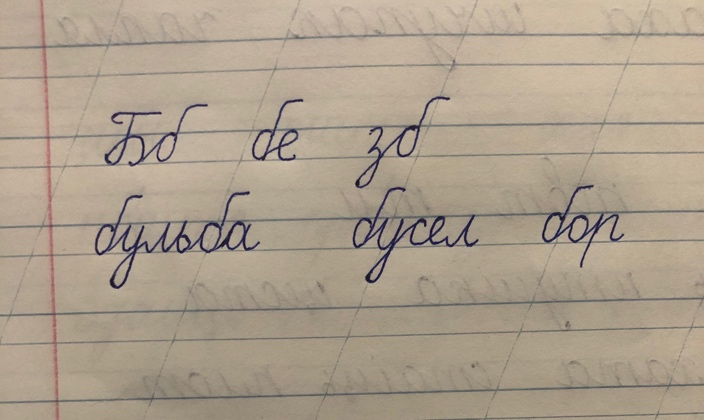 Бб бе зб
бульба бусел бор